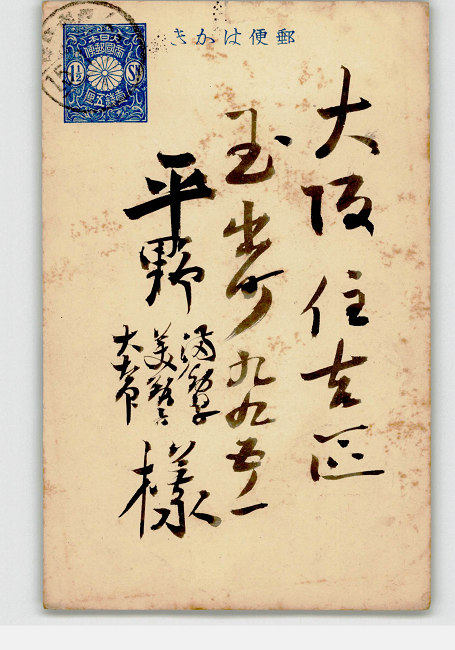 郵便はかき
大日本
帝国郵便
1½ Sn
壹錢五厘
大阪住吉区
玉出町九九五ノ一
平野
様